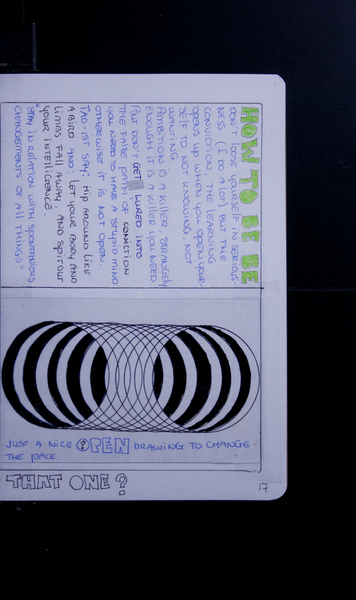 HOW TO BE BE
DON'T LOSE YOURSELF IN SERIOUS-
NESS. (I DO A LOT) BUT THE
CONVICTIONAL LEARNING
OPENS UP WHEN YOU OPEN YOUR-
SELF TO NOT KNOWING, NOT
WANTING
AMBITION IS A KILLER. STRANGELY
ENOUGH IT IS A KILLER YOU NEED
BUT DON'T GET LURED INTO
THE FALSE PATH OF CONVICTION
YOU NEED TO HAVE A STUPID MIND
OTHERWISE IT IS NOT OPEN.
TAO-IST SAY: HIP AROUND LIKE
A BIRD AND: LET YOUR BODY AND
LIMBS FALL AWAY. AND SPIT OUT
YOUR INTELLIGENCE.
"STAY IN RELATION WITH SPONTANIOUS
CHANGEMENTS OF ALL THINGS"
JUST A NICE OPEN DRAWING TO CHANGE
THE PACE
THAT ONE?
17